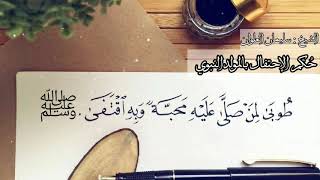 الشيخ : سليمان العلوان
حُكم الإحتفال بالمولد النبوي
طُوبَىٰ لِمَنْ صَلَّىٰ عَلَيْهِ مَحَبَّةً، وَبِهِ اقْتَفَىٰ. ﷺ